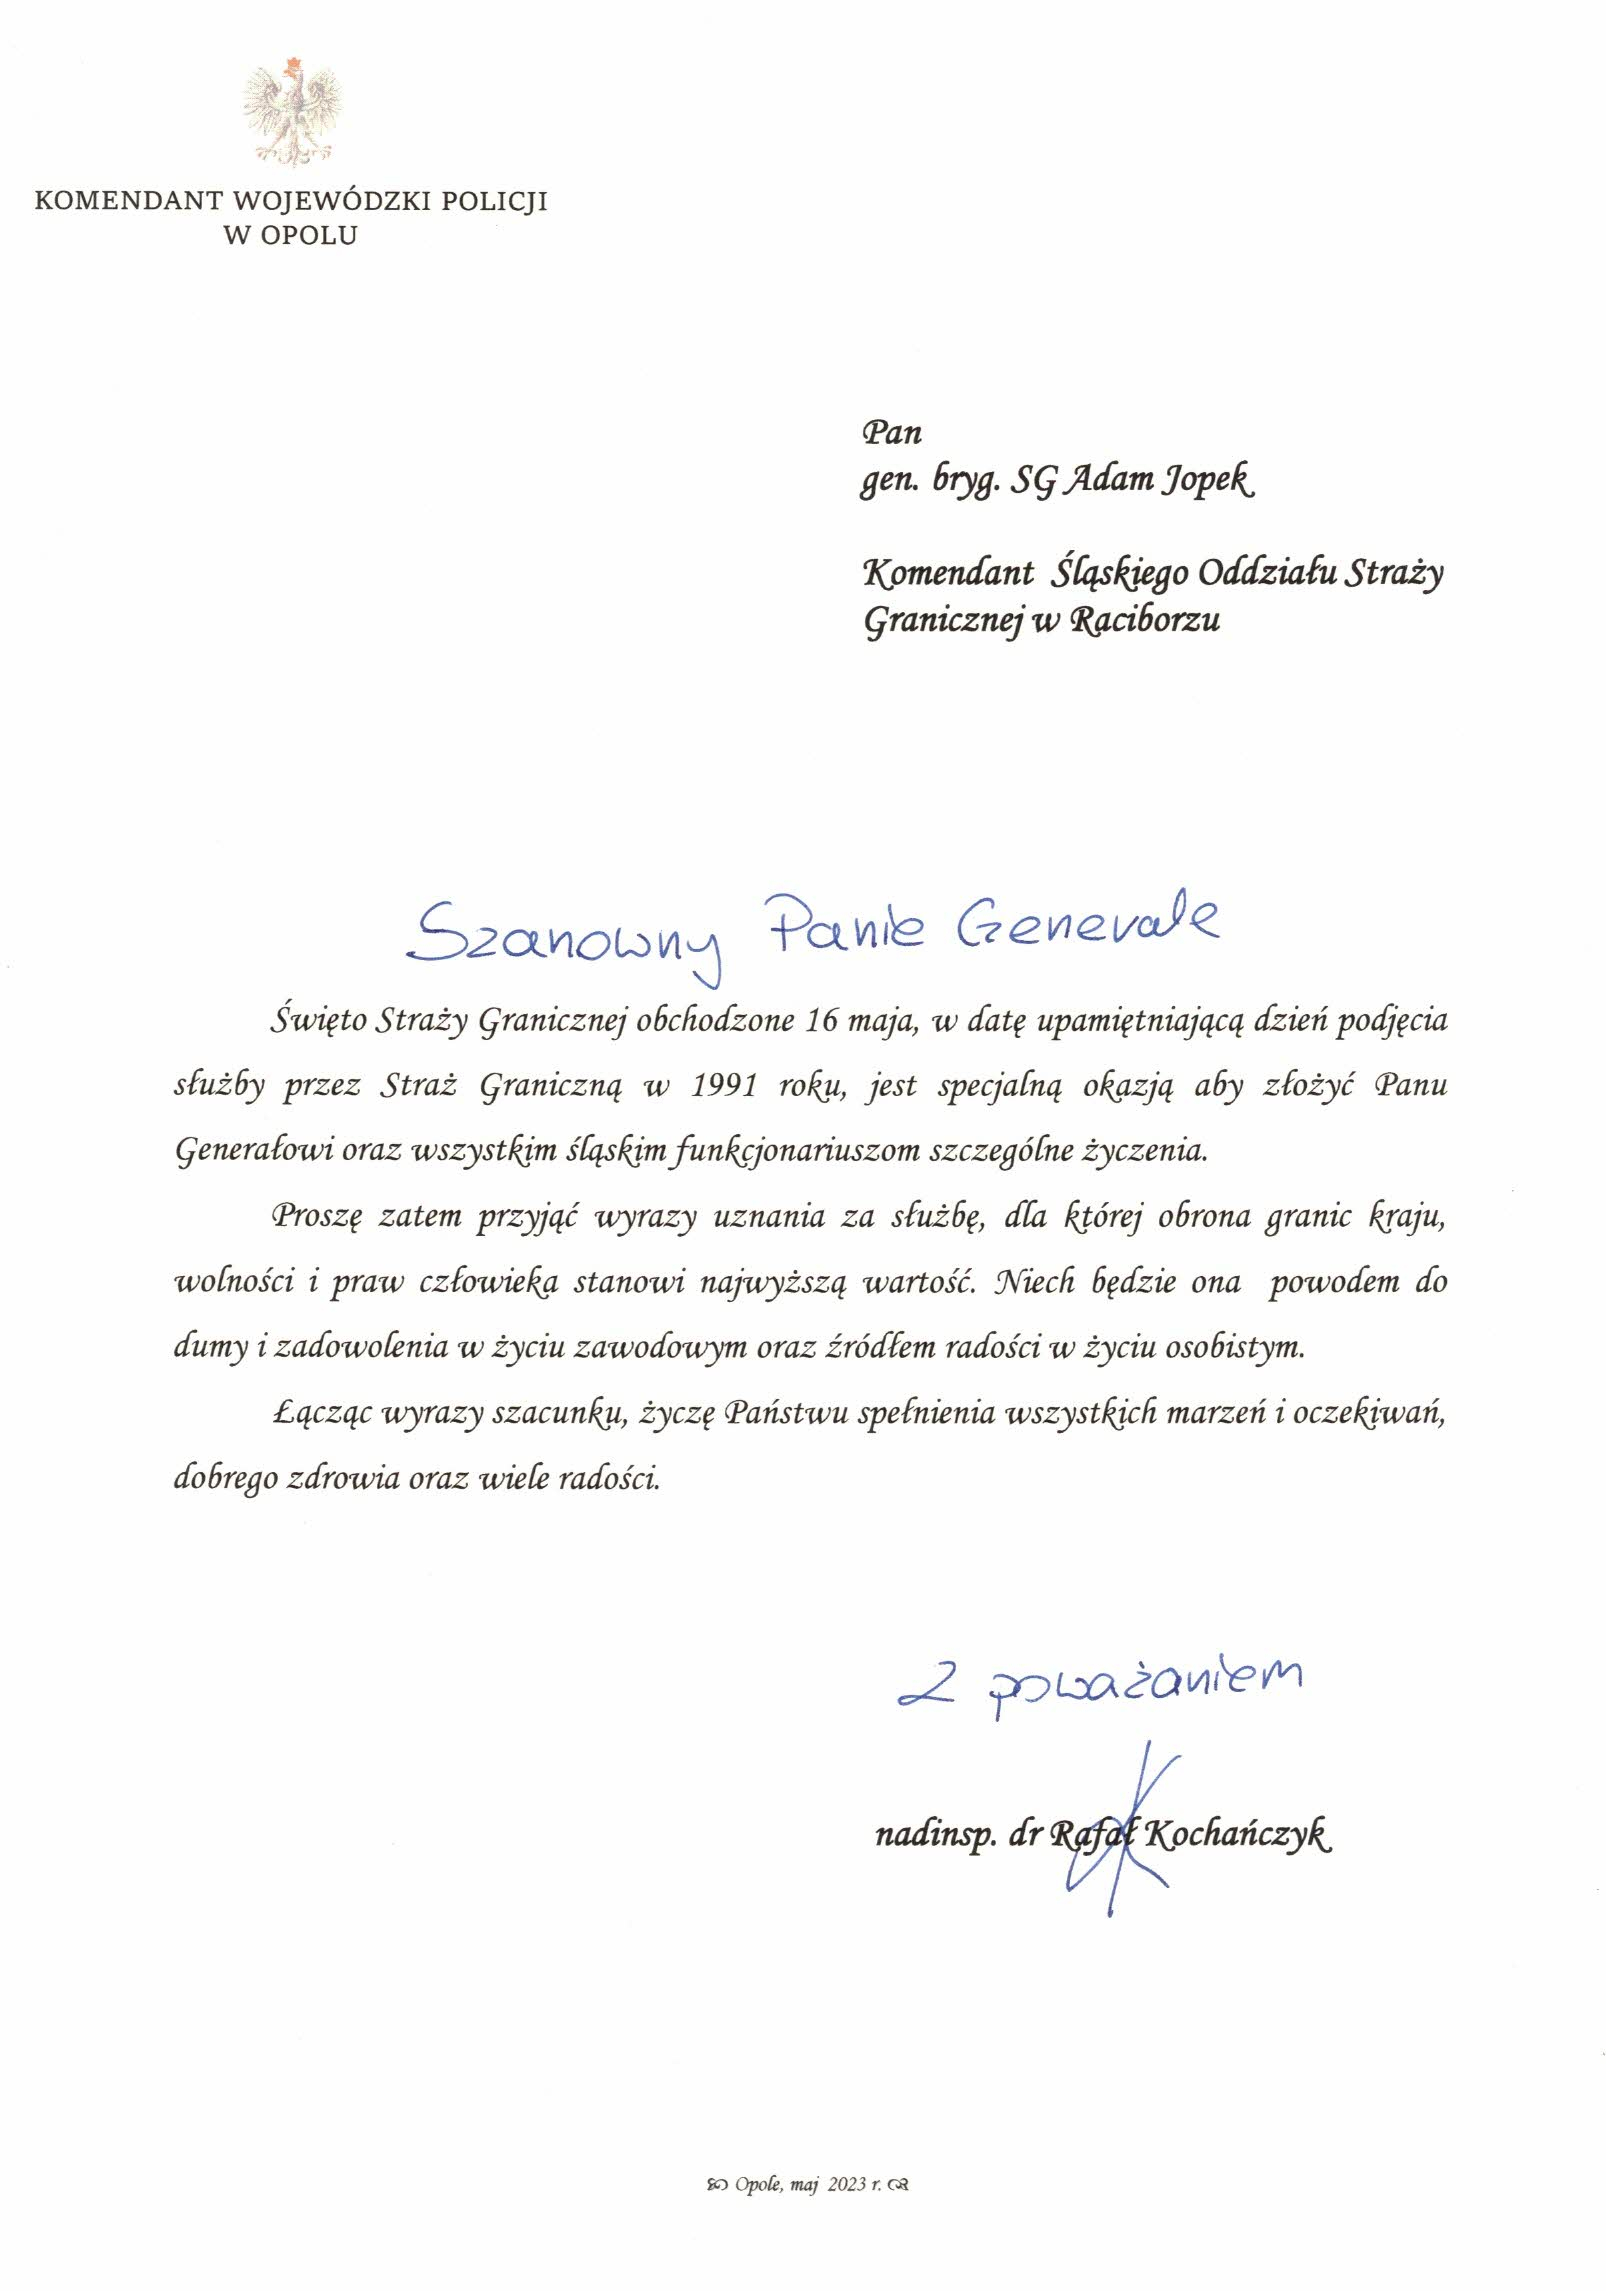 KOMENDANT WOJEWÓDZKI POLICJI
W OPOLU
Pan
gen. bryg. SG Adam Jopek
Komendant Śląskiego Oddziału Straży
Granicznej w Raciborzu
Szanowny Panie Generale
Święto Straży Granicznej obchodzone 16 maja, w datę upamiętniającą dzień podjęcia
służby przez Straż Graniczną w 1991 roku, jest specjalną okazją aby złożyć Panu
Generałowi oraz wszystkim śląskim funkcjonariuszom szczególne życzenia.
Proszę zatem przyjąć wyrazy uznania za służbę, dla której obrona granic kraju,
wolności i praw człowieka stanowi najwyższą wartość. Niech będzie ona powodem do
dumy i zadowolenia w życiu zawodowym oraz źródłem radości w życiu osobistym.
Łącząc wyrazy szacunku, życzę Państwu spełnienia wszystkich marzeń i oczekiwań,
dobrego zdrowia oraz wiele radości.
Z poważaniem
nadinsp. dr Rafał Kochańczyk
Opole, maj 2023 r.